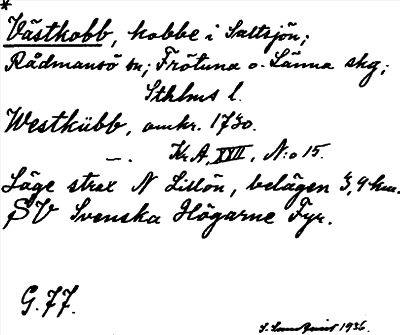 *
Västkobb, kobbe i Saltsjön;
Rådmansö sn; Frötuna o. Länna skg;
Sthlms l.
Westkübb, omkr. 1730.
—. Kr.A, XVII, N:o 15.
Läge strax N Lillön, belägen 3,9 km.
SV Svenska Högarne Fyr.
G. 77.
1936.